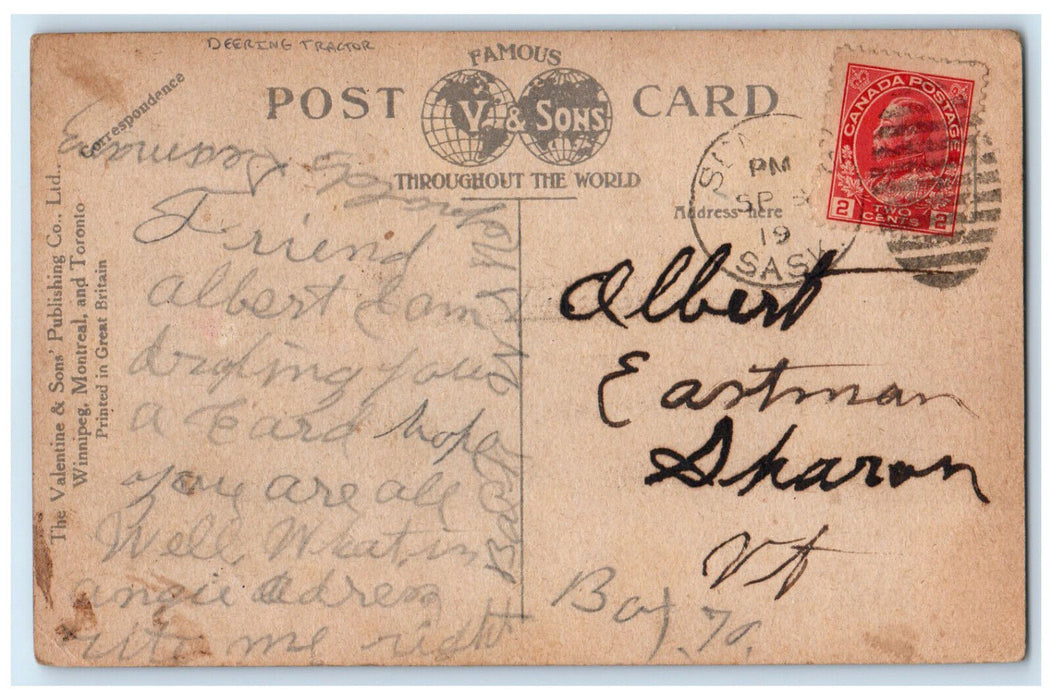 DEERING TRACTOR
FAMOUS
POST CARD
V. & SONS
THROUGHOUT THE WORLD
Correspondence
Address here
The Valentine & Sons' Publishing Co., Ltd.,
Winnipeg, Montreal, and Toronto
Printed in Great Britain
CANADA POSTAGE
2 TWO CENTS 2
PM
SP
19
SASK
Friend
Albert I am
droping you
a Card hope
you are all
Well, What is
angie adress
rite me right
Back
Albert
Eastman
Sharon
Vt
Box 70